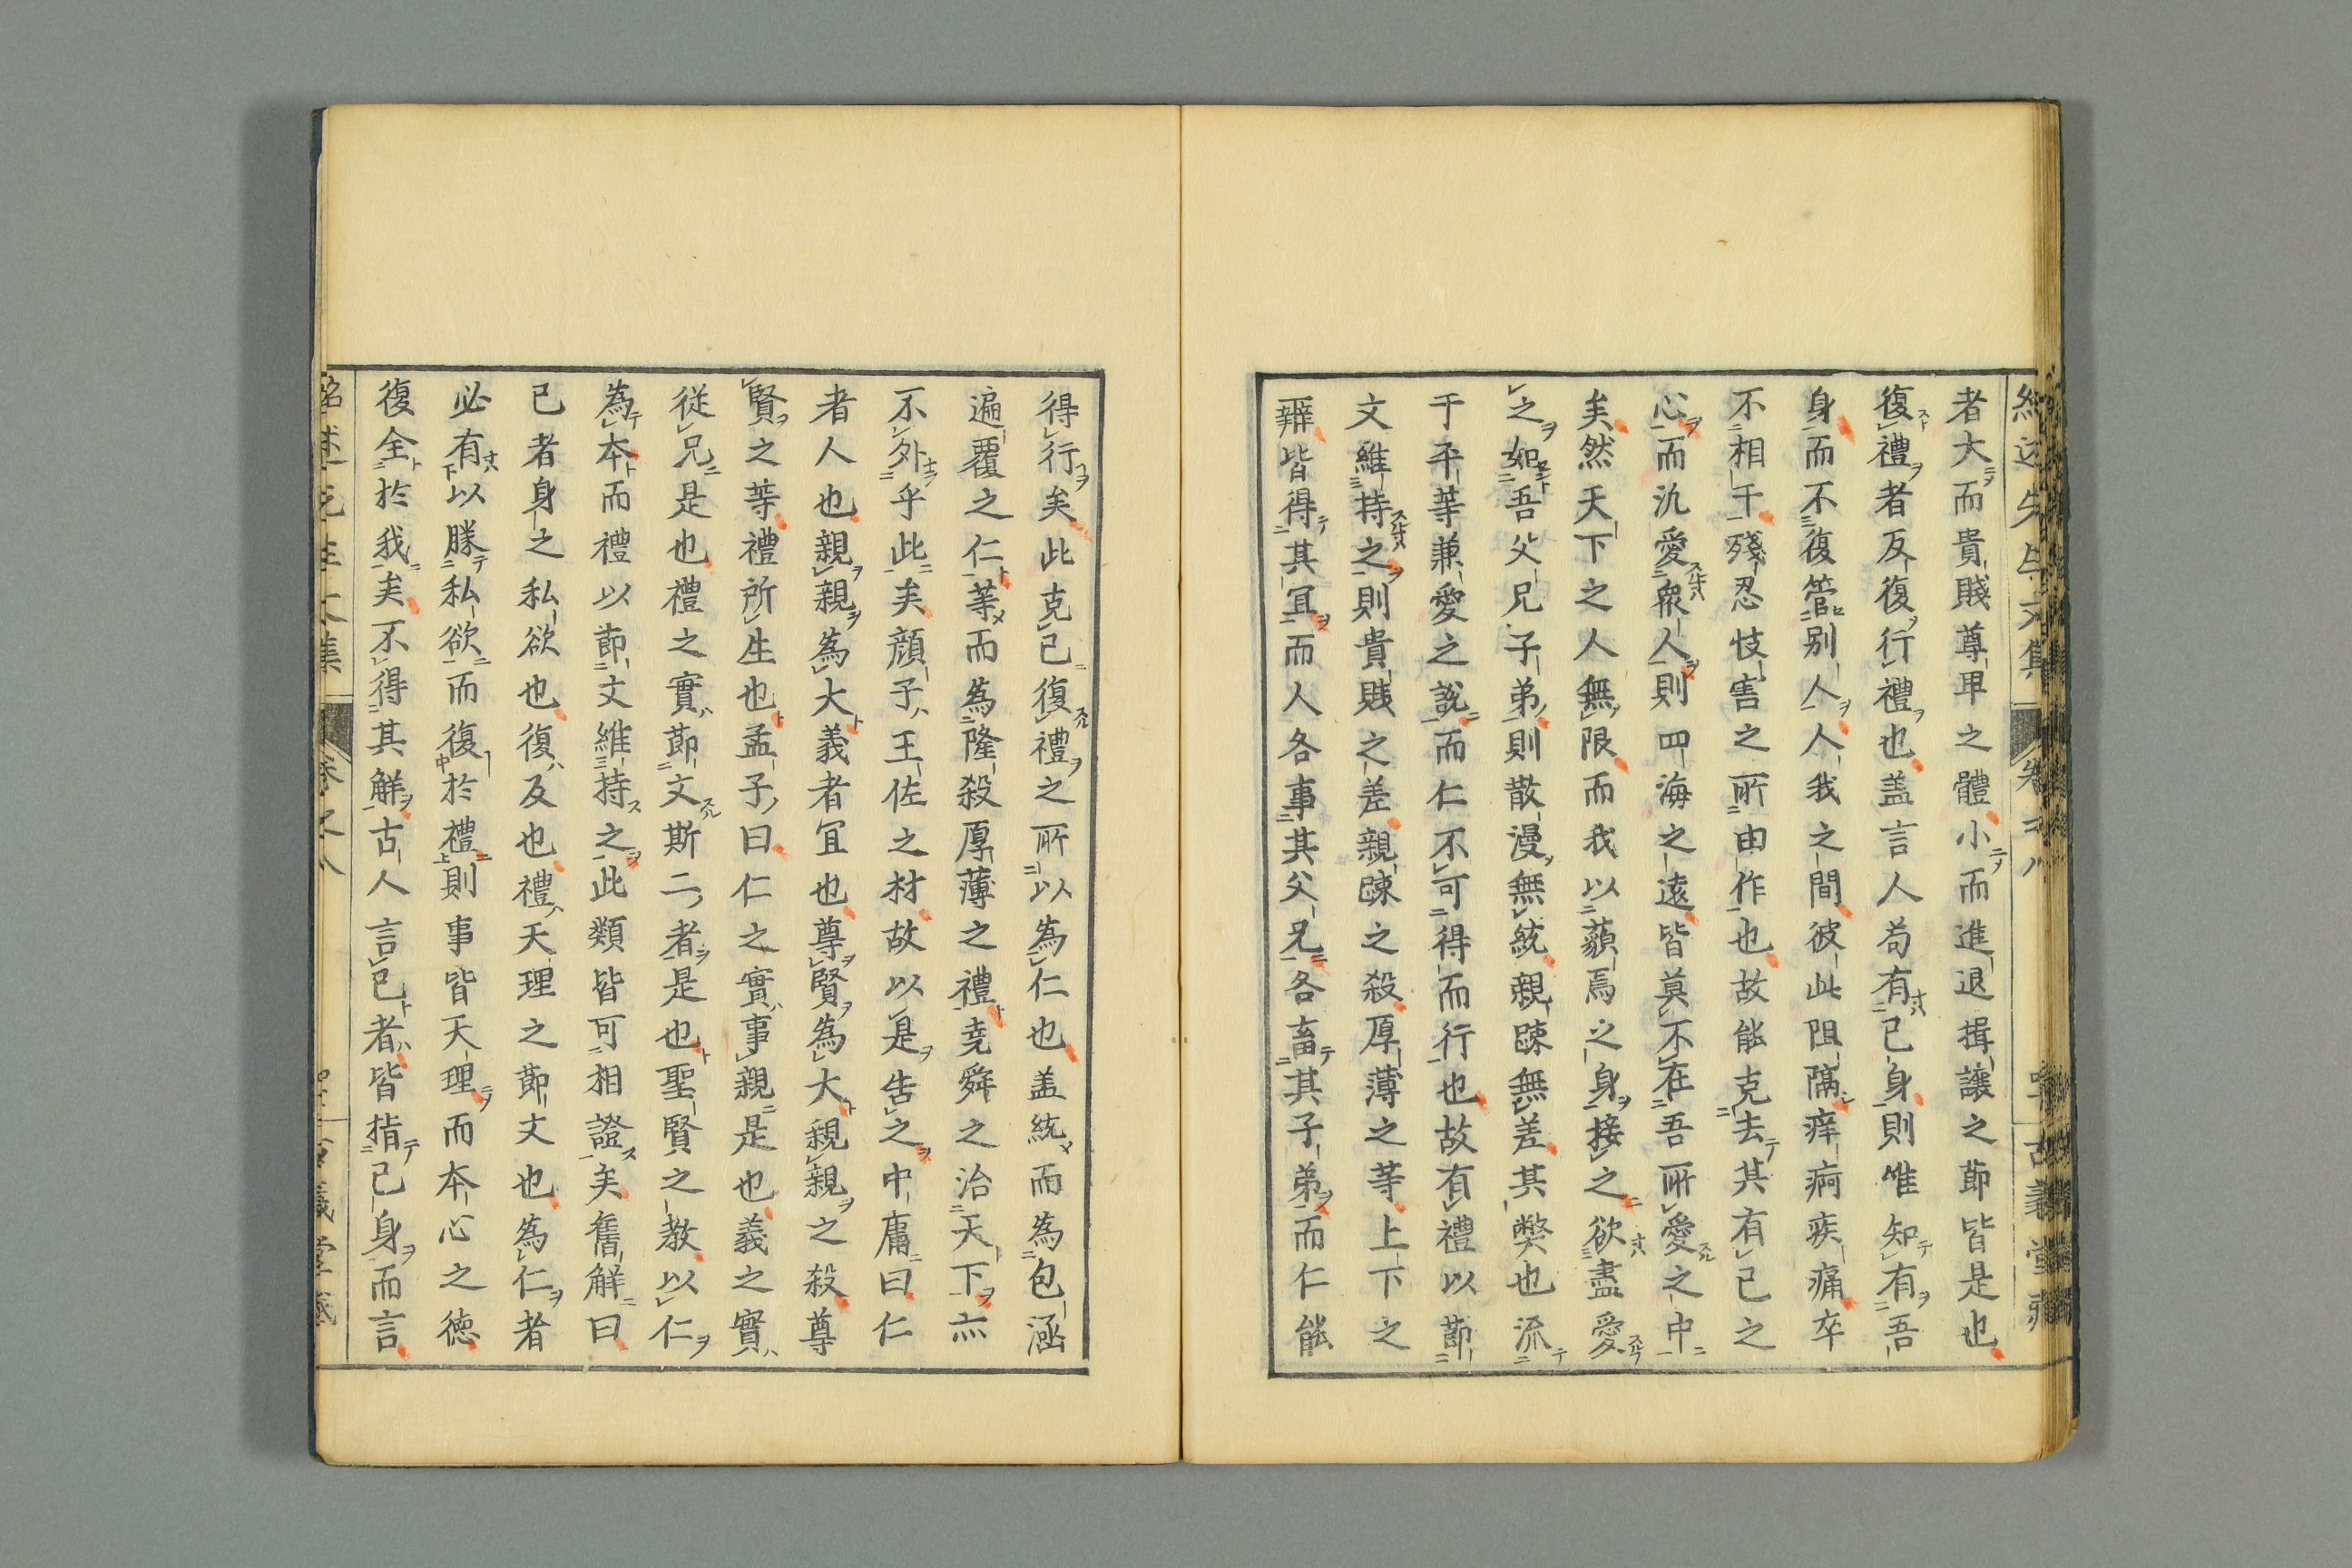 者大而貴賤尊卑之體小而進退揖讓之節皆是也
復禮者反復行禮也盖言人苟有己身則唯知有吾
身而不復管別人人我之間彼此阻隔痒痾疾痛卒
不相干殘忍忮害之所由作也故能克去其有己之
心而汎愛衆人則四海之遠皆莫不在吾所愛之中
矣然天下之人無限而我以藐焉之身接之欲盡愛
之如吾父兄子弟則散漫無統親踈無差其弊也流
于平等兼愛之說而仁不可得而行也故有禮以節
文維持之則貴賤之差親踈之殺厚薄之等上下之
辨皆得其冝而人各事其父兄各畜其子弟而仁能
得行矣此克己復禮之所以為仁也盖統而為包涵
遍覆之仁等而為隆殺厚薄之禮堯舜之治天下亦
不外乎此矣顔子王佐之材故以是告之中庸曰仁
者人也親親為大義者冝也尊賢為大親親之殺尊
賢之等禮所生也孟子曰仁之實事親是也義之實
從兄是也禮之實節文斯二者是也聖賢之教以仁
為本而禮以節文維持之此類皆可相證矣舊解曰
己者身之私欲也復反也禮天理之節文也為仁者
必有以勝私欲而復於禮則事皆天理而本心之德
復全於我矣不得其解古人言己者皆指己身而言
紹述先生文集
卷之八
古義堂藏